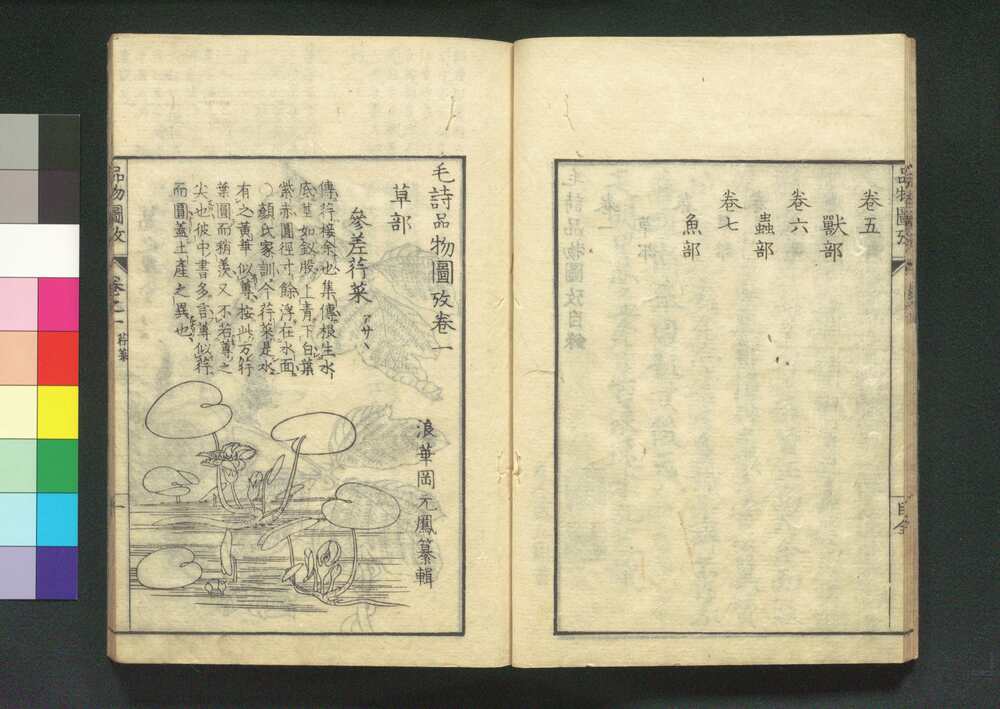 卷五
獸部
卷六
蟲部
卷七
魚部
品物圖攷
目全
毛詩品物圖攷卷一
浪華岡元鳳纂輯
草部
參差荇菜 アサヽ
傳荇接余也集傳根生水
底莖如釵股上青下白葉
紫赤圓徑寸餘浮在水面
○顏氏家訓今荇菜是水
有之黃華似蓴按此方荇
葉圓而稍羨又不若蓴之
尖也彼中書多言蓴似荇
而圓蓋土產之異也
品物圖攷
卷之一
荇菜
一